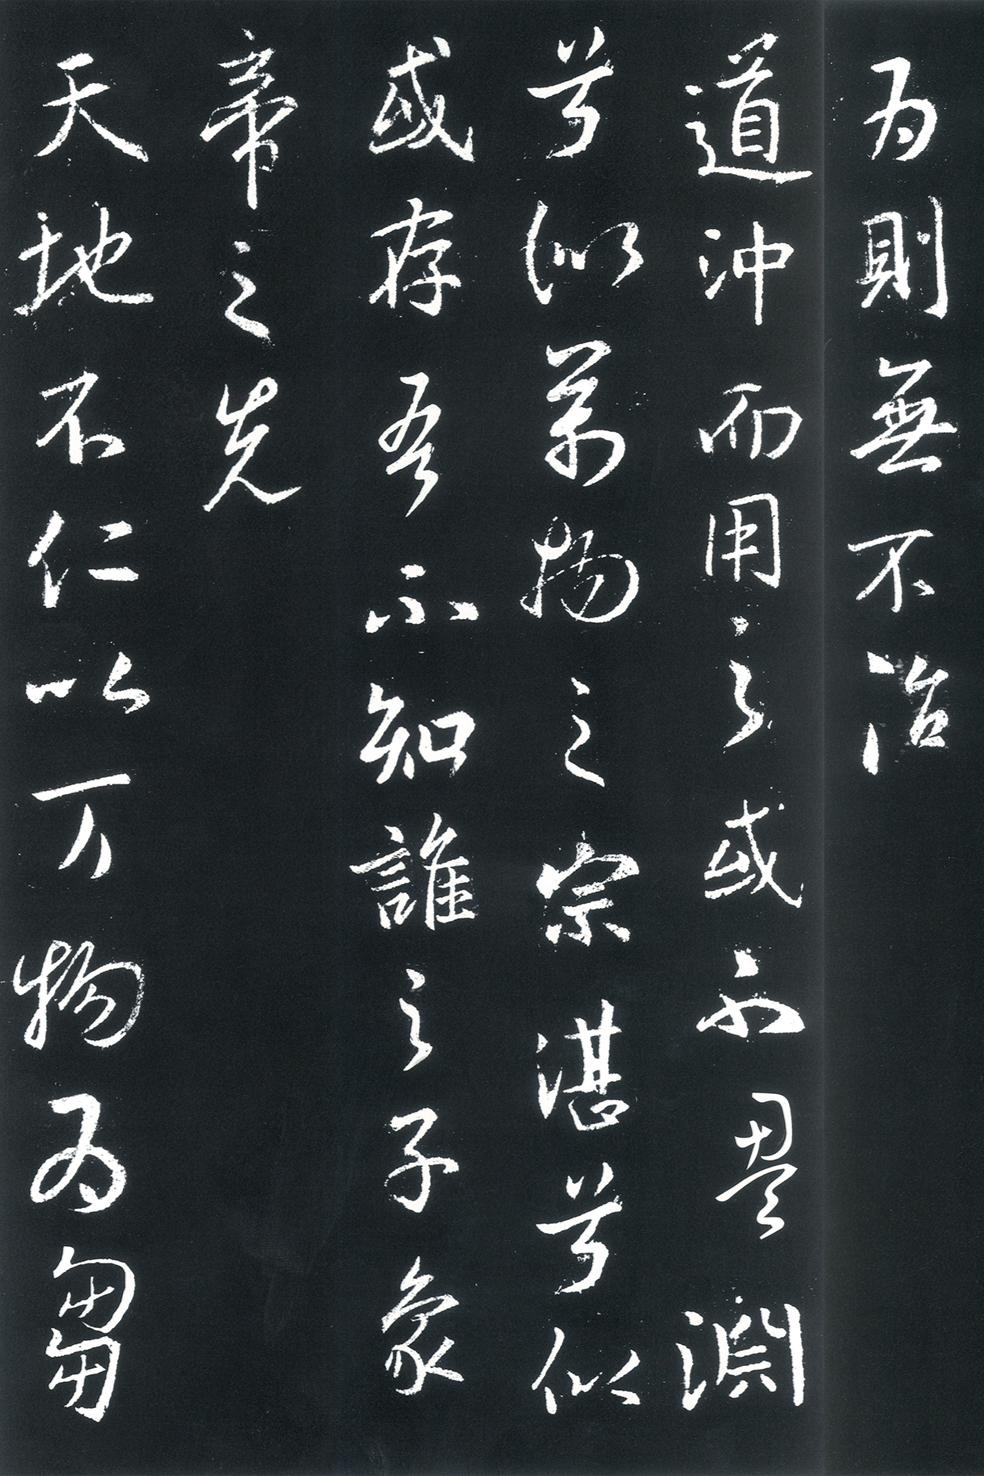 為則無不治
道沖而用之或不盈淵
兮似萬物之宗湛兮似
或存吾不知誰之子象
帝之先
天地不仁以万物為芻